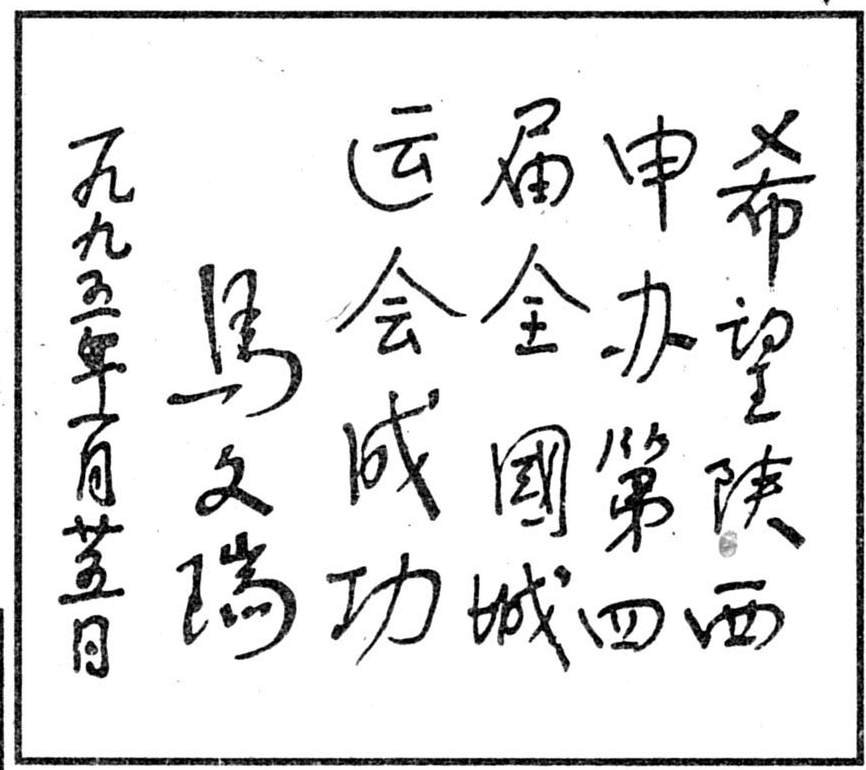 希望陕西
申办第四
届全國城
运会成功
馬文瑞
一九九五年一月廿五日